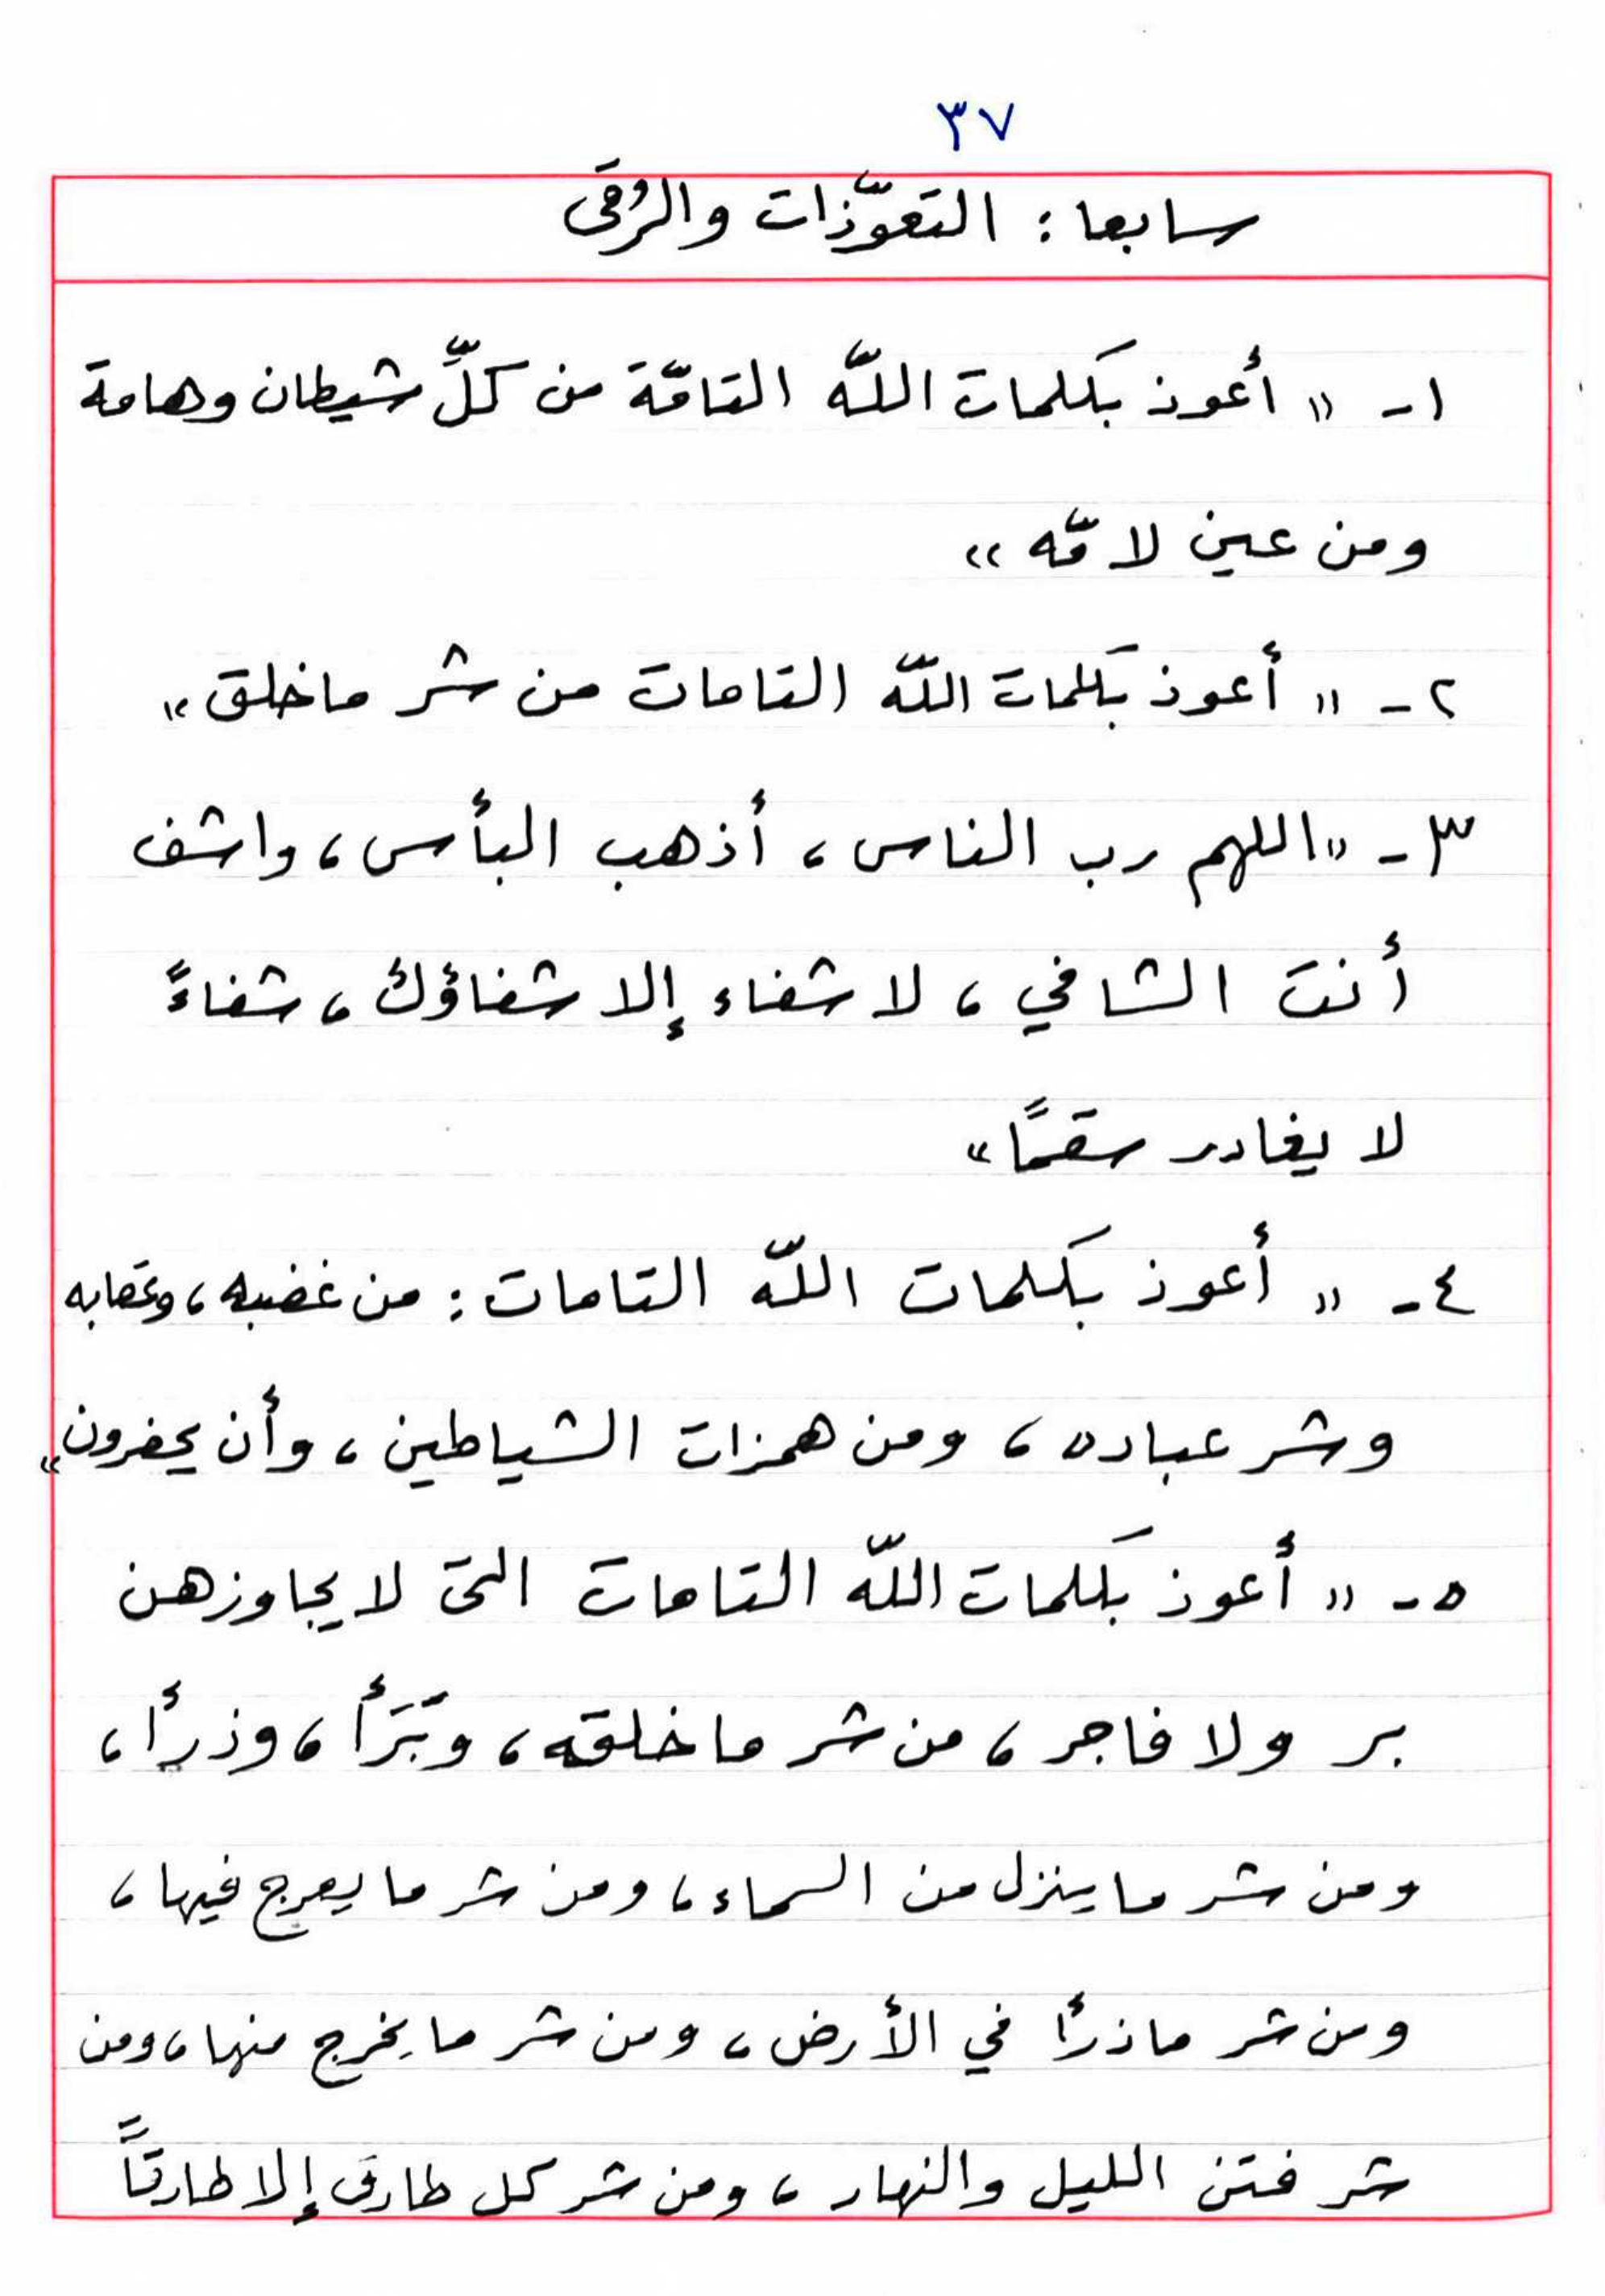 ٣٧
سابعا: التعوّذات والرُقَى
١- « أعوذ بكلمات اللّه التامّة من كلِّ شيطان وهامة
ومن عين لامّه »
٢- « أعوذ بكلمات اللّه التامات من شر ما خلق »
٣- « اللهم رب الناس، أذهب البأس، واشف
أنت الشافي، لا شفاء إلا شفاؤك، شفاءً
لا يغادر سقمًا »
٤- « أعوذ بكلمات اللّه التامات: من غضبه، وعقابه
وشر عباده، ومن همزات الشياطين، وأن يحضرون »
٥- « أعوذ بكلمات اللّه التامات التى لا يجاوزهن
بر ولا فاجر، من شر ما خلقه، وبَرَأ، وذرأ،
ومن شر ما ينزل من السماء، ومن شر ما يعرج فيها،
ومن شر ما ذرأ في الأرض، ومن شر ما يخرج منها، ومن
شر فتن الليل والنهار، ومن شر كل طارق إلا طارقاً